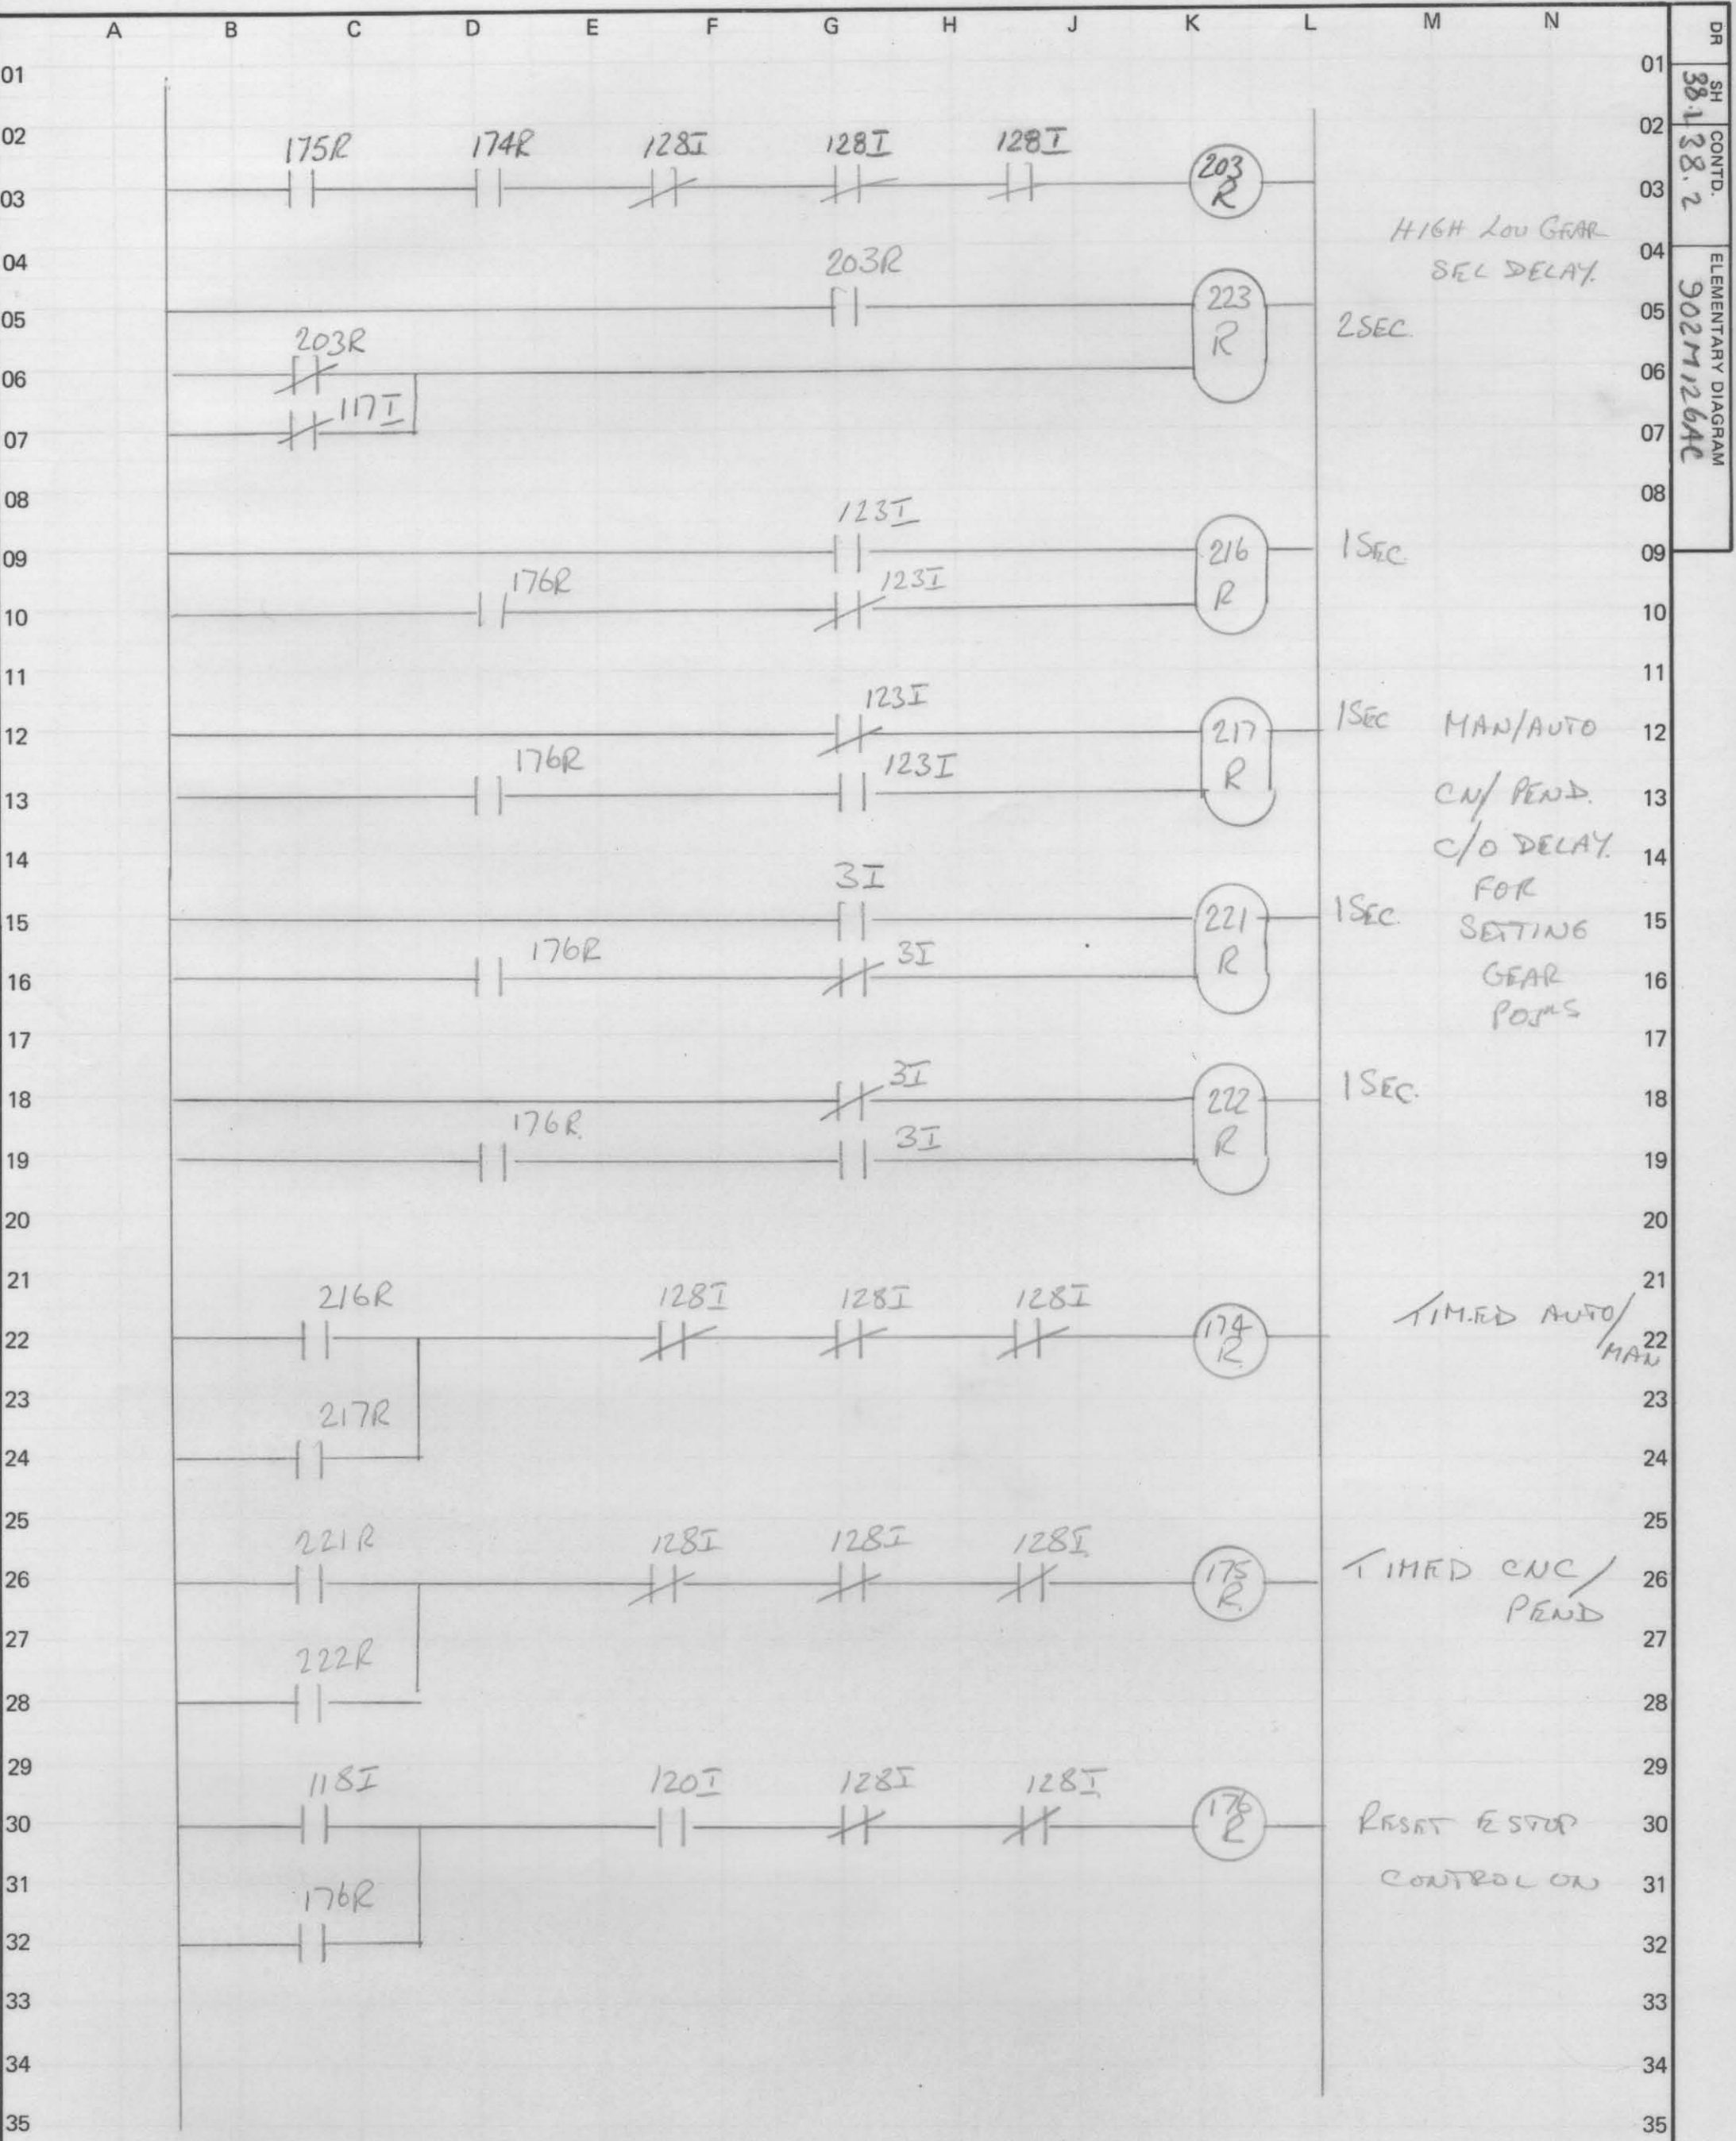 A B C D E F G H J K L M N
DR
SH
38.1
CONTD.
38.2
ELEMENTARY DIAGRAM
902M126AC
01 01
02 175R 174R 128I 128I 128I 02
03 203 R 03
HIGH LOW GEAR
04 203R SEL DELAY. 04
05 223 R 2SEC. 05
203R
06 06
117I
07 07
08 123I 08
09 216 R 1SEC. 09
176R 123I
10 10
11 123I 11
12 217 R 1SEC MAN/AUTO 12
176R 123I
13 CN/ PEND. 13
14 C/O DELAY. 14
3I FOR
15 221 R 1SEC. SETTING 15
176R 3I
16 GEAR 16
POSNS
17 17
3I
18 222 R 1SEC. 18
176R. 3I
19 19
20 20
21 216R 128I 128I 128I 21
TIMED AUTO/
22 174 R. MAN 22
23 217R 23
24 24
25 221R 128I 128I 128I 25
26 175 R. TIMED CNC/ 26
PEND
27 222R 27
28 28
29 118I 120I 128I 128I 29
30 176 R RESET E STOP 30
31 176R CONTROL ON 31
32 32
33 33
34 34
35 35